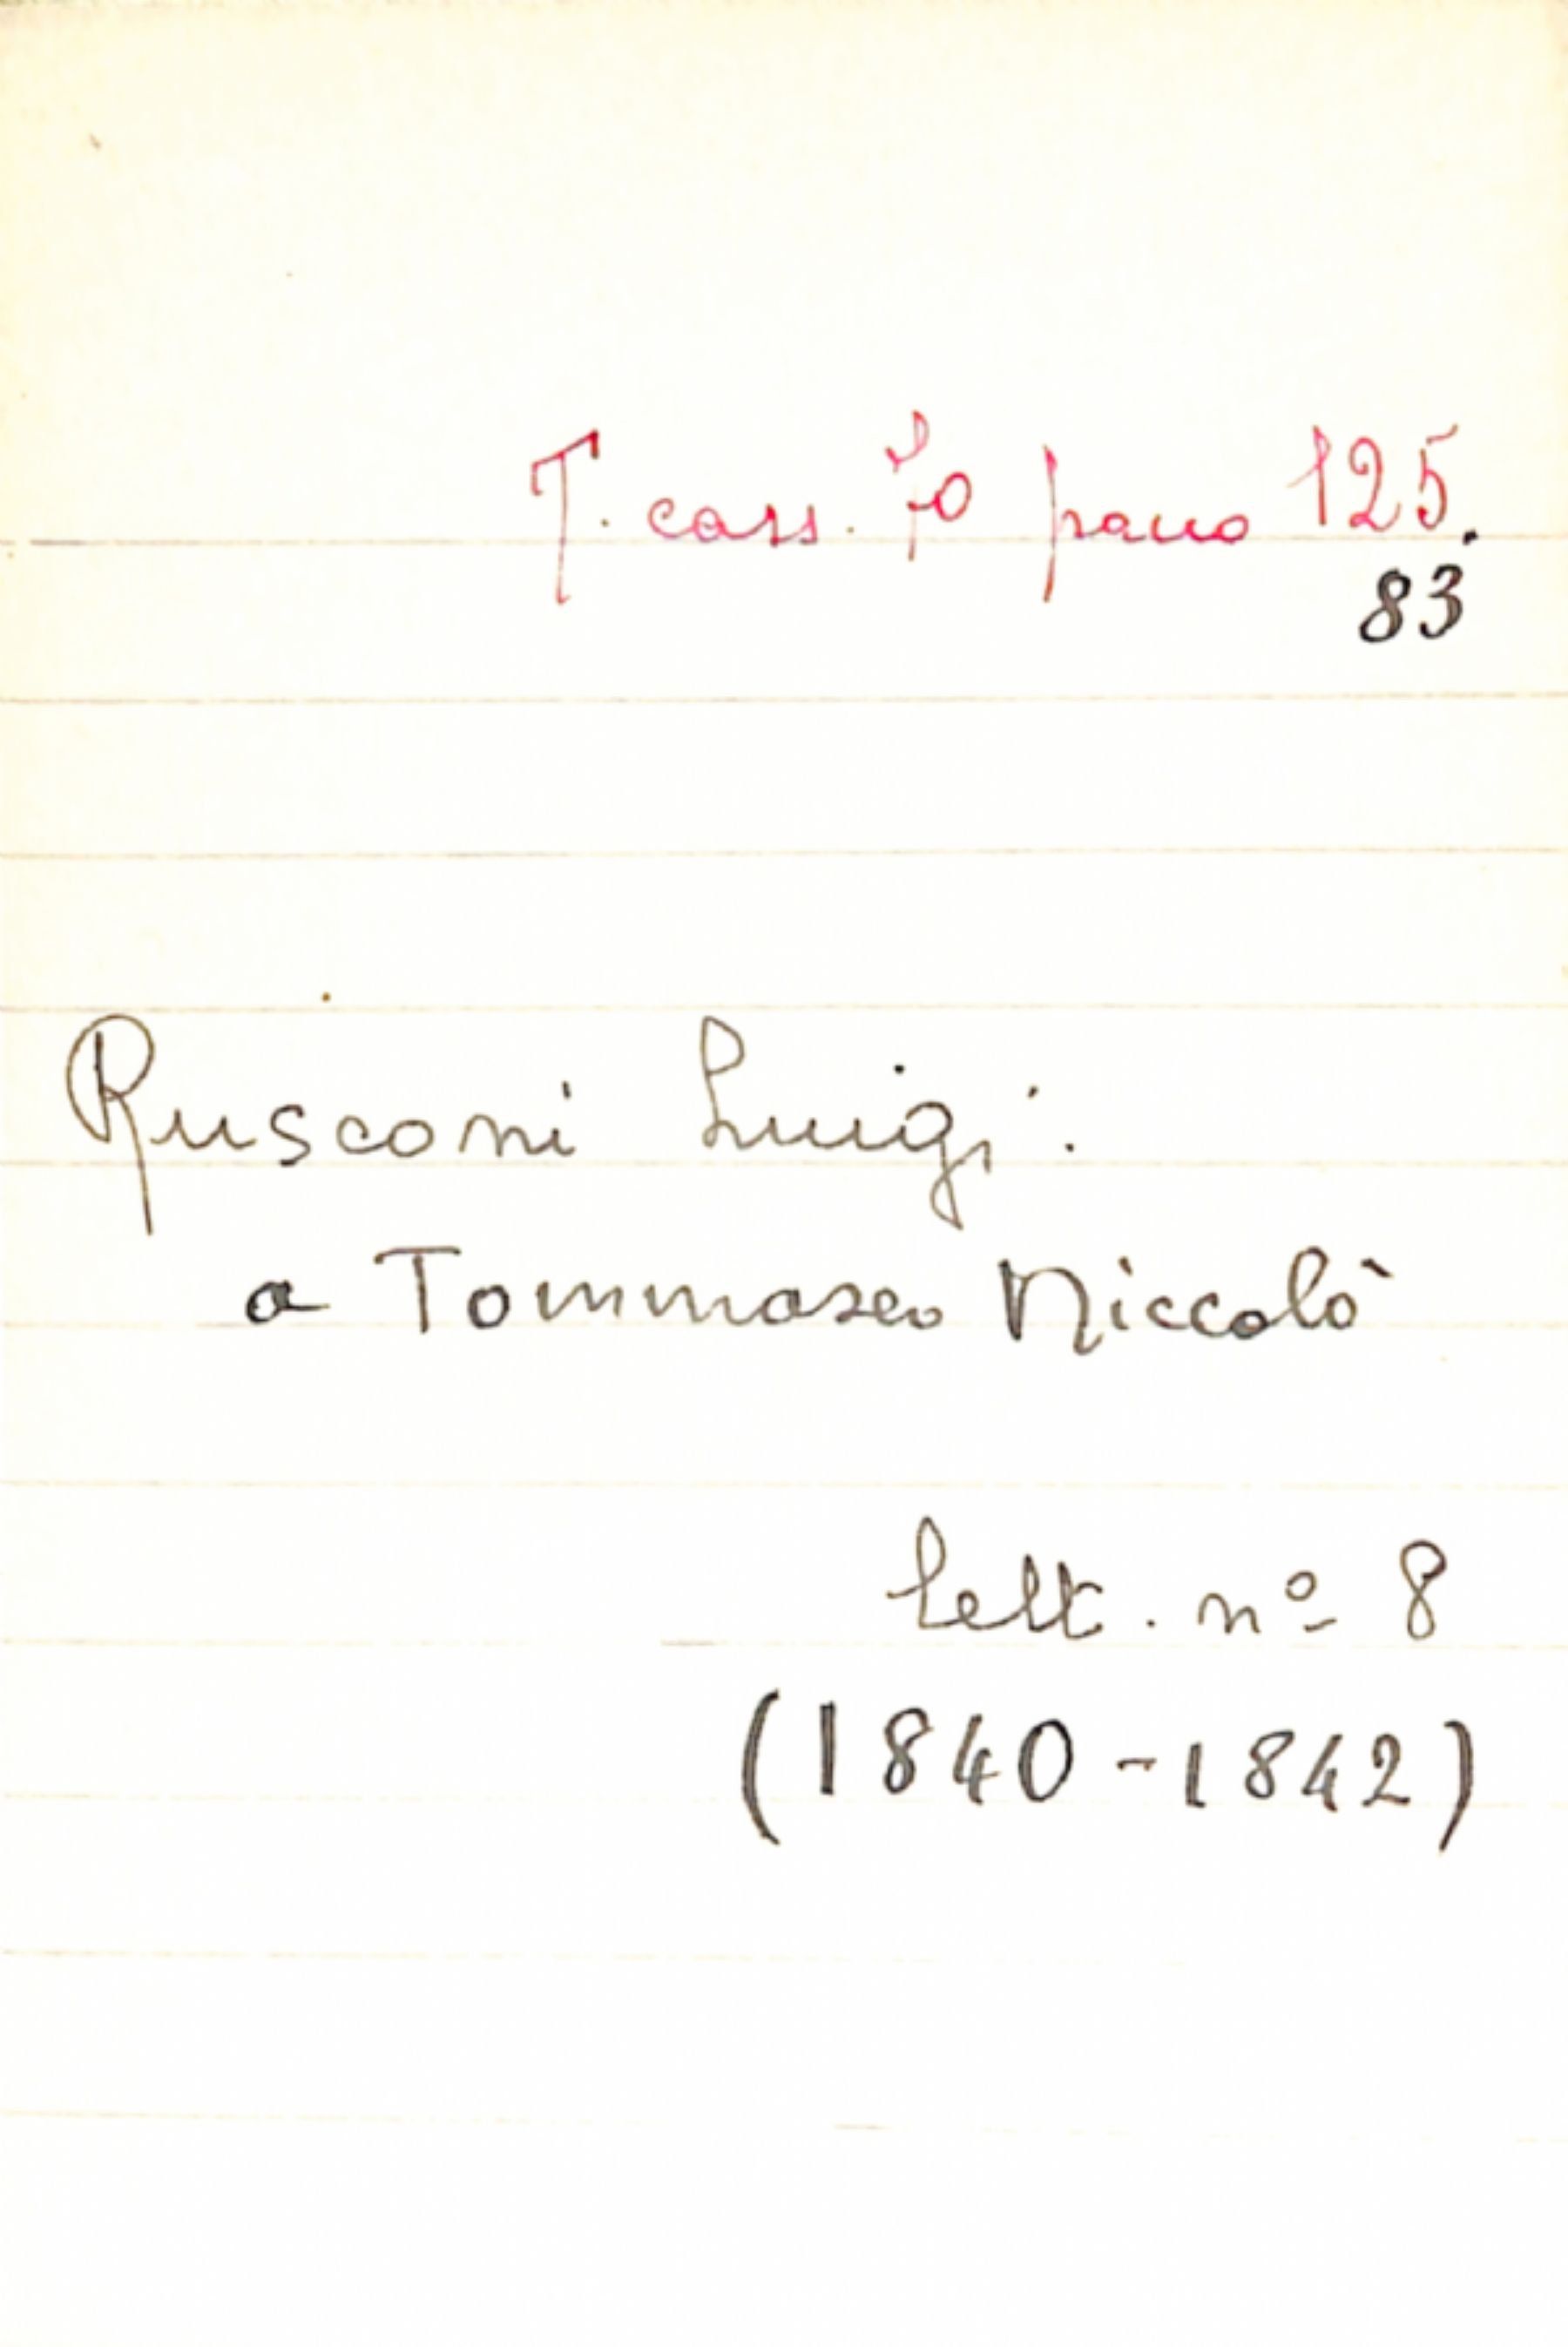 T. cass. 70 pacco 125.
83
Rusconi Luigi.
a Tommaseo Niccolò
lett. nº 8
(1840-1842)